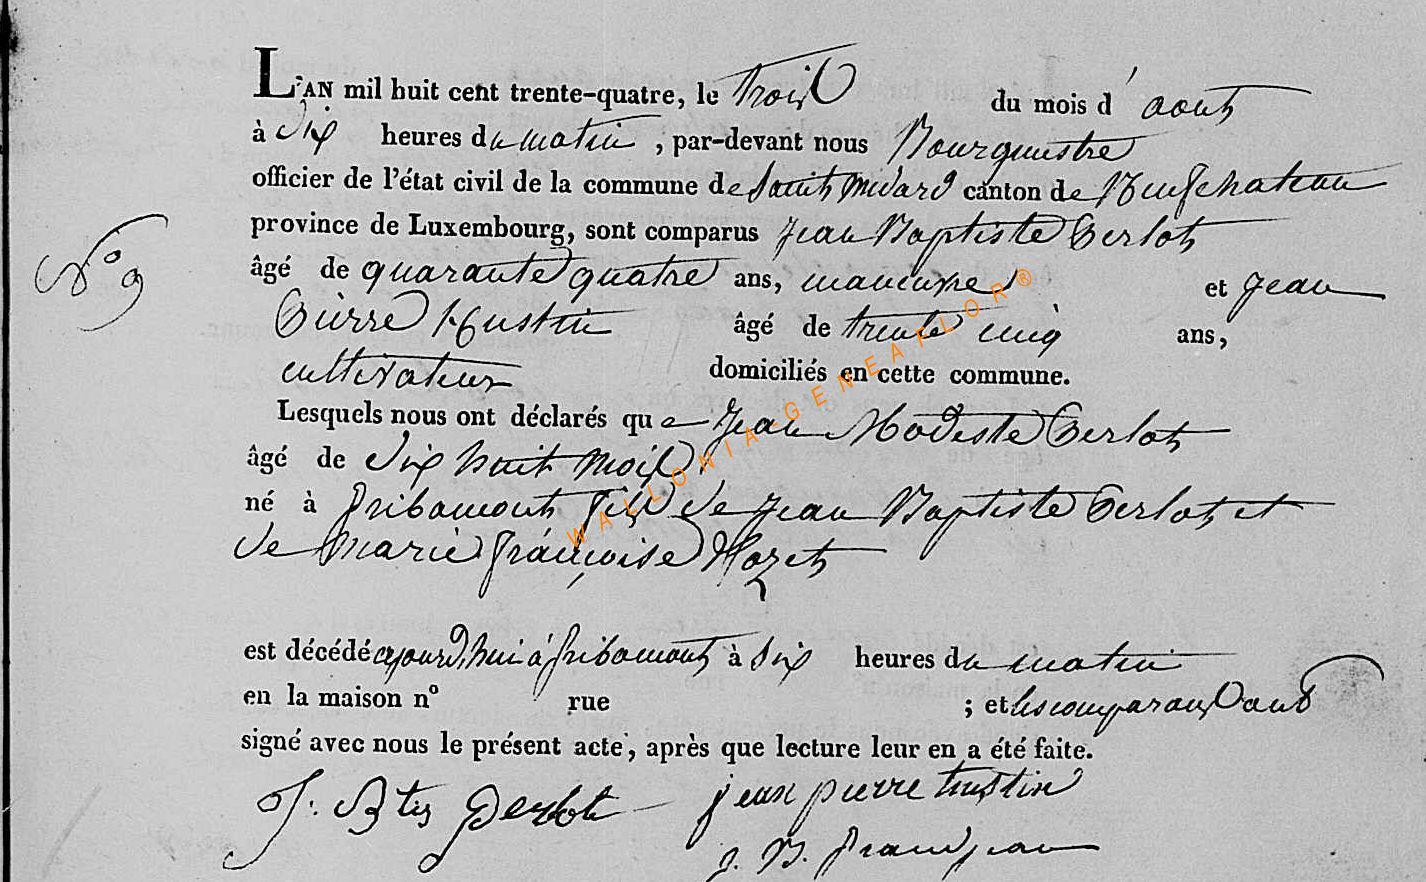 L'AN mil huit cent trente-quatre, le trois du mois d'aout
à dix heures du matin, par-devant nous Bourguestre
officier de l'état civil de la commune de Saint Médard canton de Neufchateau
province de Luxembourg, sont comparus Jean Baptiste Perlot
N° 9
âgé de quarante quatre ans, et Jean
Pierre Hustin âgé de trente cinq ans,
cultivateur domiciliés en cette commune.
Lesquels nous ont déclarés que Jean Modeste Perlot
âgé de dix huit mois
né à Gribomont fils de Jean Baptiste Perlot et
de Marie françoise Nozet
est décédé ajourd'hui à Gribomont à six heures du matin
en la maison n° rue ; et les comparans ont
signé avec nous le présent acte, après que lecture leur en a été faite.
J. Bte Perlot jean pierre hustin
J. B. Grandjean
WALLONIA-GENEAFLOR®